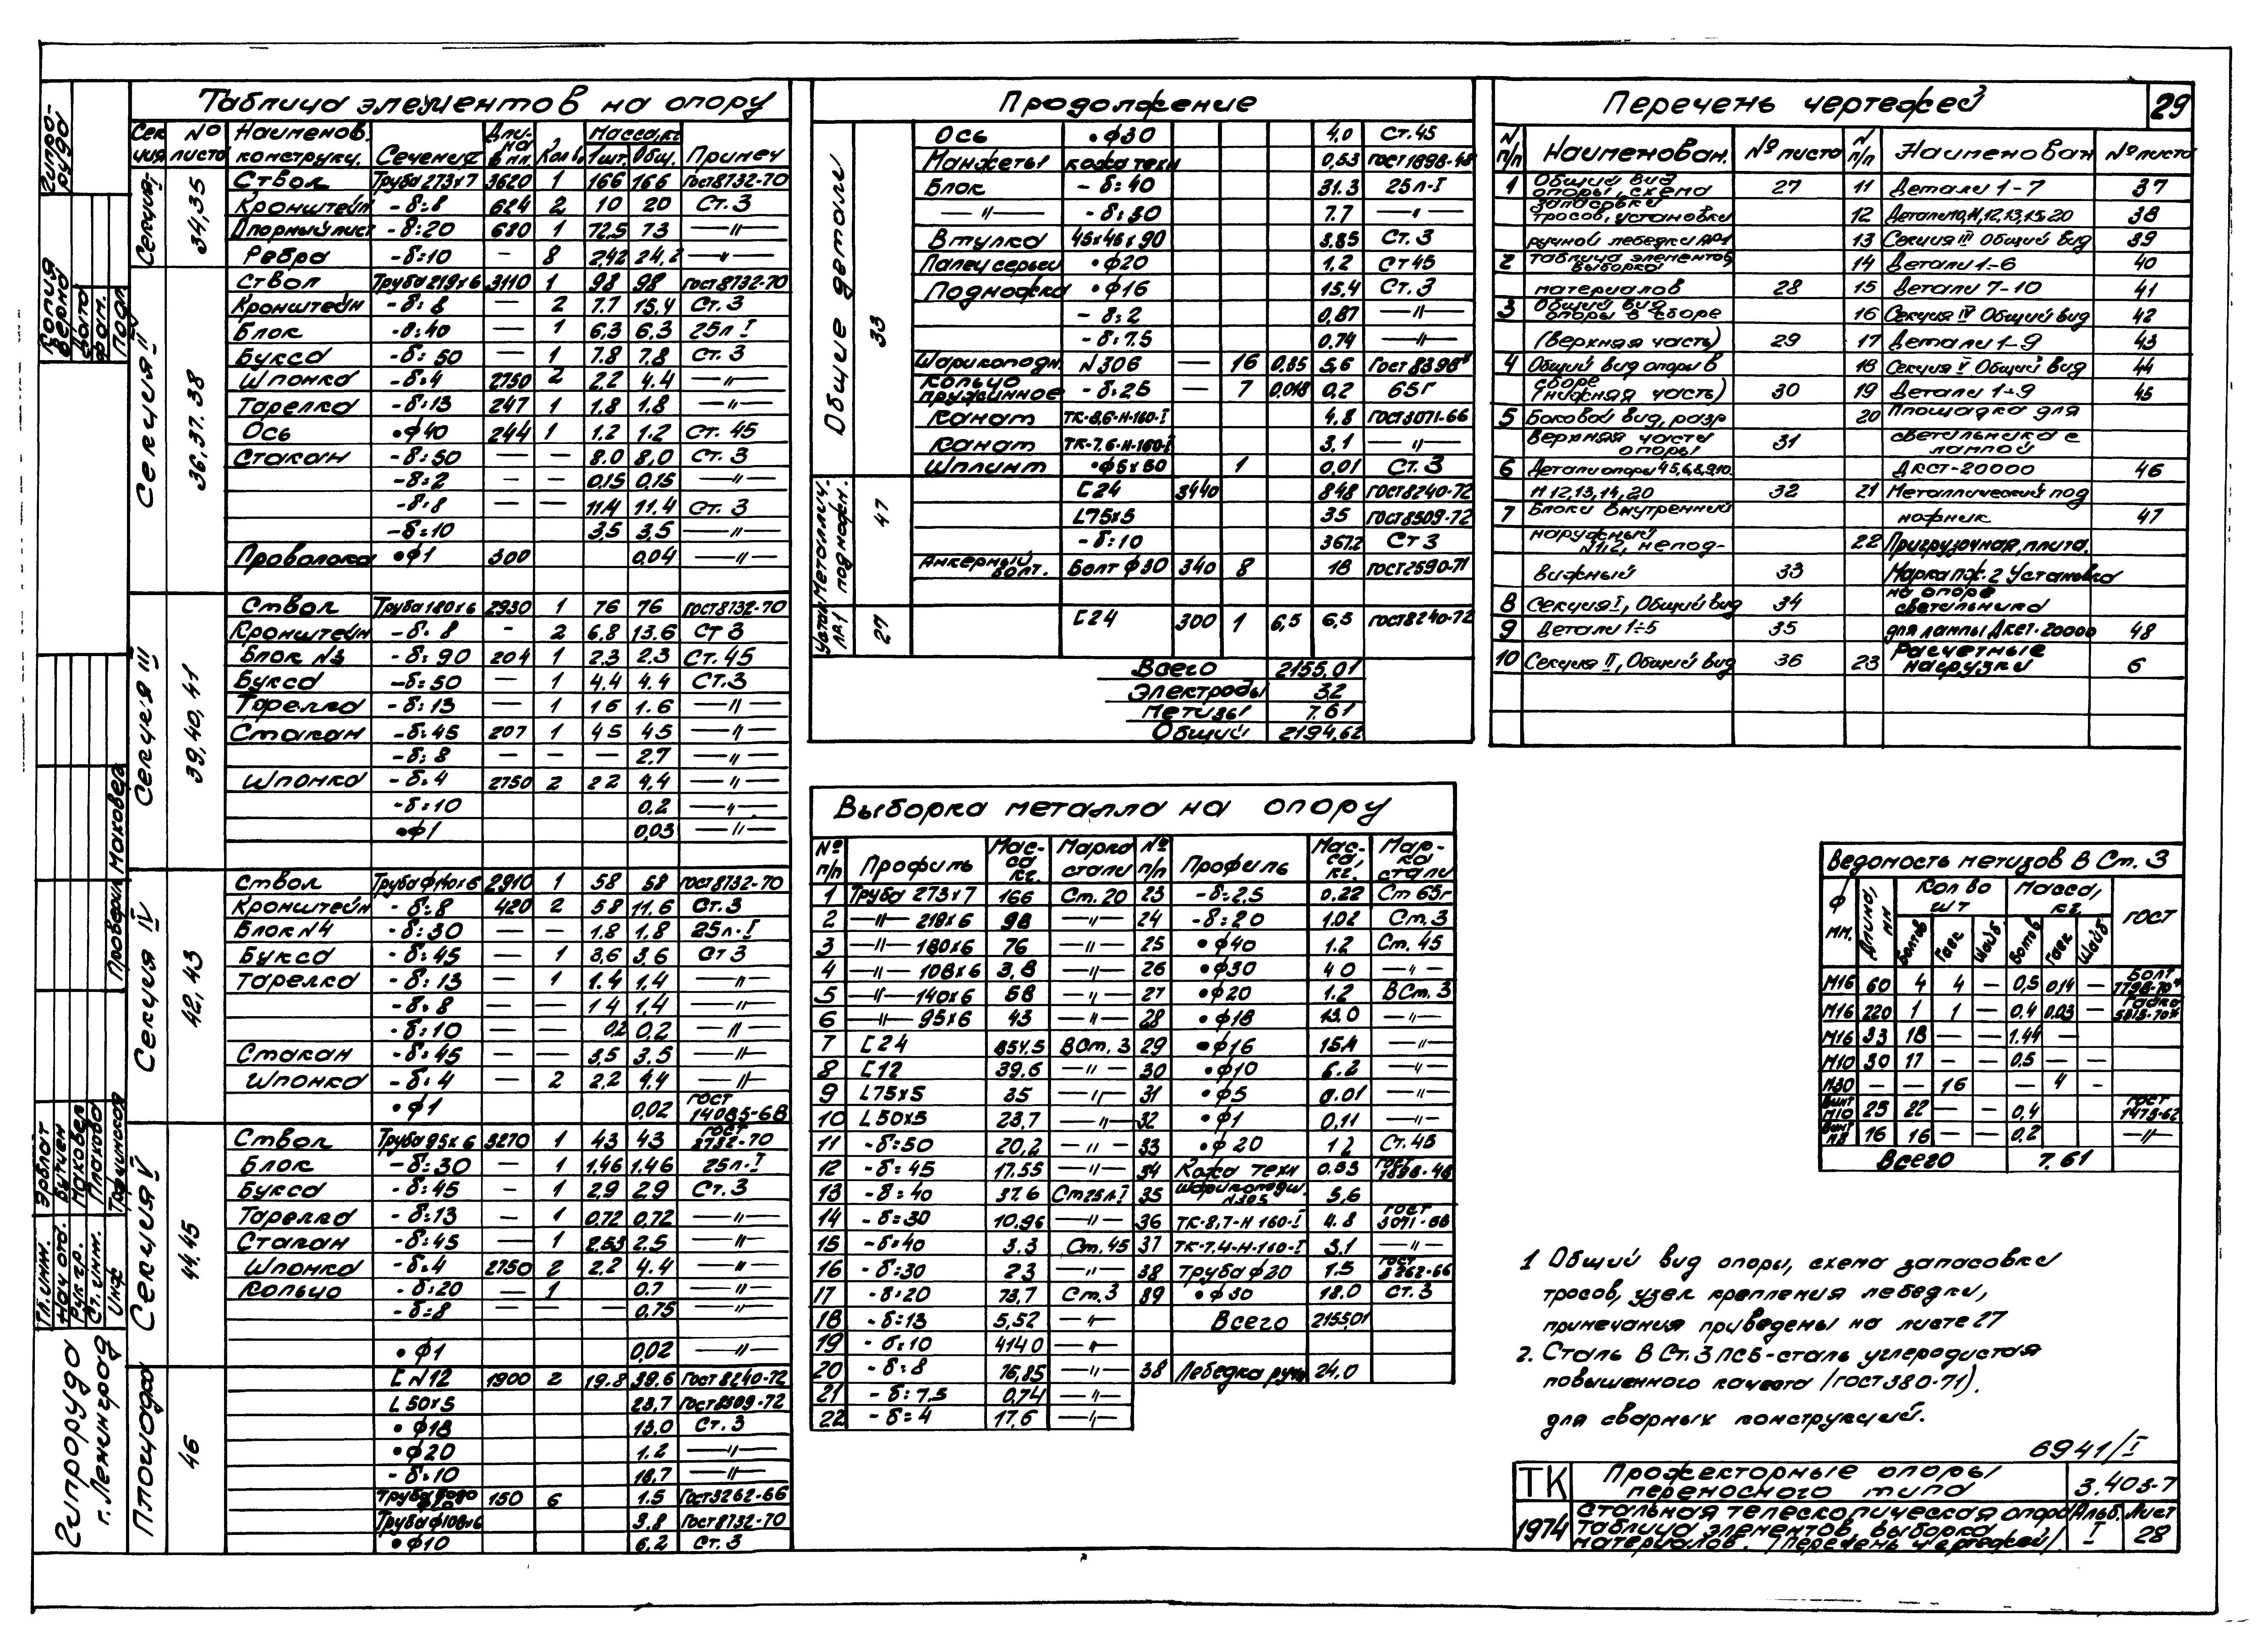 29
Таблица элементов на опору
Сек ция | № листа | Наименов. конструкц. | Сечения | Дли- на в мм. | Кол в. | Масса, кг 1шт. Общ. | Примеч
Секция I 34,35
Ствол Труба 273x7 3620 1 166 166 Гост 8732-70
Кронштейн - δ=8 624 2 10 20 Ст.3
Опорный лист - δ=20 620 1 72,5 73 —"—
Ребра - δ=10 — 8 2,42 24,2 —"—
Секция II 36,37.38
Ствол Труба 219x6 3110 1 98 98 Гост 8732-70
Кронштейн - δ=8 — 2 7.7 15,4 Ст.3
Блок - δ=40 — 1 6,3 6.3 25л I
Букса - δ=50 — 1 7.8 7,8 Ст.3
Шпонка - δ=4 2750 2 2.2 4.4 —"—
Тарелка - δ=13 247 1 1.8 1.8 —"—
Ось •ф40 244 1 1.2 1.2 Ст. 45
Стакан - δ=50 — — 8.0 8,0 Ст.3
- δ=2 — — 0,15 0,15 —"—
- δ=8 — — 11.4 11.4 Ст. 3
- δ=10 3,5 3,5 —"—
Проволока •ф1 300 0,04 —"—
Секция III 39,40,41
Ствол Труба 180x6 2930 1 76 76 Гост 8732-70
Кронштейн - δ= 8 - 2 6,8 13.6 Ст 3
Блок №3 - δ= 90 204 1 2.3 2.3 Ст. 45
Букса - δ=50 — 1 4.4 4.4 Ст.3
Тарелка - δ=13 — 1 1 6 1.6 —"—
Стакан - δ=45 207 1 4 5 4.5 —"—
- δ=8 — — — 2.7 —"—
Шпонка - δ=4 2750 2 2 2 4,4 —"—
- δ=10 0,2 —"—
•ф1 0,03 —"—
Секция IV 42,43
Ствол Труба ф140x6 2910 1 58 58 Гост 8732-70
Кронштейн - δ=8 420 2 5 8 11.6 Ст.3
Блок №4 - δ=30 — — 1.8 1,8 25л.I
Букса - δ=45 — 1 3,6 3,6 Ст 3
Тарелка - δ=13 — 1 1.4 1,4 —"—
- δ=8 — — 1 4 1,4 —"—
- δ=10 — — 0,2 0,2 —"—
Стакан - δ=45 — — 3,5 3.5 —"—
Шпонка - δ=4 — 2 2,2 4.4 —"—
•ф1 0,02 гост 14085-68
Секция V 44.45
Ствол Труба 95x6 3270 1 43 43 Гост 8732-70
Блок - δ=30 — 1 1.46 1.46 25л-I
Букса - δ=45 — 1 2.9 2.9 Ст.3
Тарелка - δ=13 — 1 0.72 0,72 —"—
Стакан - δ=45 — 1 2.53 2.5 —"—
Шпонка - δ=4 2750 2 2.2 4.4 —"—
Кольцо - δ=20 — 1 0.7 —"—
- δ=8 — — — 0.75 —"—
•ф1 0,02 —"—
Площадка 46
[ №12 1900 2 19.8 39.6 Гост 8240-72
L 50x5 23,7 Гост 8509-72
•ф18 13.0 Ст.3
•ф20 1.2 —"—
- δ=10 18,7 —"—
Труба водо ф20 150 6 1.5 Гост 3262-66
Труба ф108x6 3.8 Гост 8732-70
•ф10 6.2 Ст.3
Продолжение
Общие детали 33
Ось •ф30 4,0 Ст.45
Манжеты кожа техн 0,53 Гост 1898-48
Блок - δ=40 31.3 25л-I
—"— - δ=30 7.7 —"—
Втулка 45x45x90 3.85 Ст.3
Палец серьги •ф20 1.2 Ст 45
Подножка •ф16 15.4 Ст.3
- δ=2 0,87 —"—
- δ=7.5 0.74 —"—
Шарикоподш. №306 — 16 0,85 5,6 Гост 8396
Кольцо пружинное - δ=25 — 7 0,018 0,2 65г
Канат ТК-8,6-Н-160-I 4.8 ГОСТ3071-66
Канат ТК-7.6-Н-160-I 3,1 —"—
Шплинт •ф5x50 1 0,01 Ст. 3
Металлич. подножн. 47
[24 3440 848 ГОСТ 8240-72
L75x5 35 ГОСТ 8509-72
- δ=10 367.2 Ст 3
Анкерный болт. Болт ф30 340 8 18 ГОСТ 2590-71
Устан. ЛР1 27
[24 300 1 6,5 6,5 ГОСТ 8240-72
Всего 2155,01
Электроды 32
Метизы 7.61
Общий 2194,62
Выборка металла на опору
№ п/п | Профиль | Мас- са кг. | Марка стали | № п/п | Профиль | Мас- са, кг. | Мар- ка стали
1 Труба 273x7 166 Ст. 20 23 - δ=2.5 0.22 Ст 65г
2 —"— 219x6 98 —"— 24 - δ=20 1.02 Ст.3
3 —"— 180x6 76 —"— 25 •ф40 1.2 Ст. 45
4 —"— 108x6 3,8 —"— 26 •ф30 4 0 —"—
5 —"— 140x6 58 —"— 27 •ф20 1.2 В Ст. 3
6 —"— 95x6 43 —"— 28 •ф18 13.0 —"—
7 [24 854,5 В Ст. 3 29 •ф16 15.4 —"—
8 [12 39,6 —"— 30 •ф10 6.2 —"—
9 L75x5 35 —"— 31 •ф5 0.01 —"—
10 L50x5 23,7 —"— 32 •ф1 0,11 —"—
11 - δ=50 20,2 —"— 33 •ф20 1 2 Ст.45
12 - δ=45 17.55 —"— 34 Кожа техн 0.53 ГОСТ 1898-48
13 - δ=40 37.6 Ст 25л I 35 шарикоподш. 5,6
14 - δ=30 10.96 —"— 36 ТК-8,7-Н 160-I 4.8 ГОСТ 3071-66
15 - δ=40 3.3 Ст.45 37 ТК-7.4-Н-160-I 3,1 —"—
16 - δ=30 23 —"— 38 Труба ф20 1.5 ГОСТ 3262-66
17 - δ=20 73,7 Ст.3 39 •ф30 18.0 Ст.3
18 - δ=13 5,52 —"— Всего 2155,01
19 - δ=10 414 0 —"—
20 - δ=8 76,85 —"— 38 Лебедка ручн 24.0
21 - δ=7,5 0,74 —"—
22 - δ=4 17,6 —"—
Перечень чертежей
№ п/п | Наименован. | № листа | № п/п | Наименован | № листа
1 Общий вид опоры, схема запасовки тросов, установки ручной лебедки ЛР1 27
2 Таблица элементов выборка материалов 28
3 Общий вид опоры в сборе (верхняя часть) 29
4 Общий вид опоры в сборе (нижняя часть) 30
5 Боковой вид, разр верхняя часть опоры 31
6 Детали опоры 4,5,6,8,9,10. 11 12,13,14,20 32
7 Блоки внутренний наружный №1,2, непод- вижный 33
8 Секция I, Общий вид 34
9 Детали 1÷5 35
10 Секция II, Общий вид 36
11 Детали 1-7 37
12 Детали 10,11,12,13,15,20 38
13 Секция III Общий вид 39
14 Детали 1-6 40
15 Детали 7-10 41
16 Секция IV Общий вид 42
17 Детали 1-9 43
18 Секция V Общий вид 44
19 Детали 1÷9 45
20 Площадка для светильника с лампой ДКСТ-20000 46
21 Металлический под ножник 47
22 Пригрузочная плита. Марка ПЖ-2 Установка на опоре светильника для лампы Дкст-20000 48
23 Расчетные нагрузки 6
Ведомость метизов В Ст. 3
ф мм. | Длина, мм | Кол во шт Болтов Гаек Шайб. | Масса, кг. Болтов Гаек Шайб | ГОСТ
М16 60 4 4 — 0,5 0,14 — Болт 7798-70*
М16 220 1 1 — 0,4 0.03 — Гайка 5915-70*
М16 33 18 — 1.44 —
М10 30 17 — — 0,5 — —
М30 — — 16 — 4 -
Винт М10 25 22 — — 0,4 ГОСТ 1473-62
Винт М8 16 16 — — 0,2 —"—
Всего 7.61
1 Общий вид опоры, схема запасовки
тросов, узел крепления лебедки,
примечания приведены на листе 27
2. Сталь В Ст. 3 пс5-сталь углеродистая
повышенного качества (гост 380-71).
для сварных конструкций.
6941/I
ТК Прожекторные опоры переносного типа 3.403-7
1974 Стальная телескопическая опора Таблица элементов, выборка материалов. Перечень чертежей. Альб. I Лист 28
Гипро- руда
Копия верна
Дата
Фам.
Подп
Проверил Маковер
Гл.инж. Эрблат
Нач отд. Бутчен
Рук гр. Маковер
Ст.инж. Плахова
Инж
Гипроруда
г. Ленинград